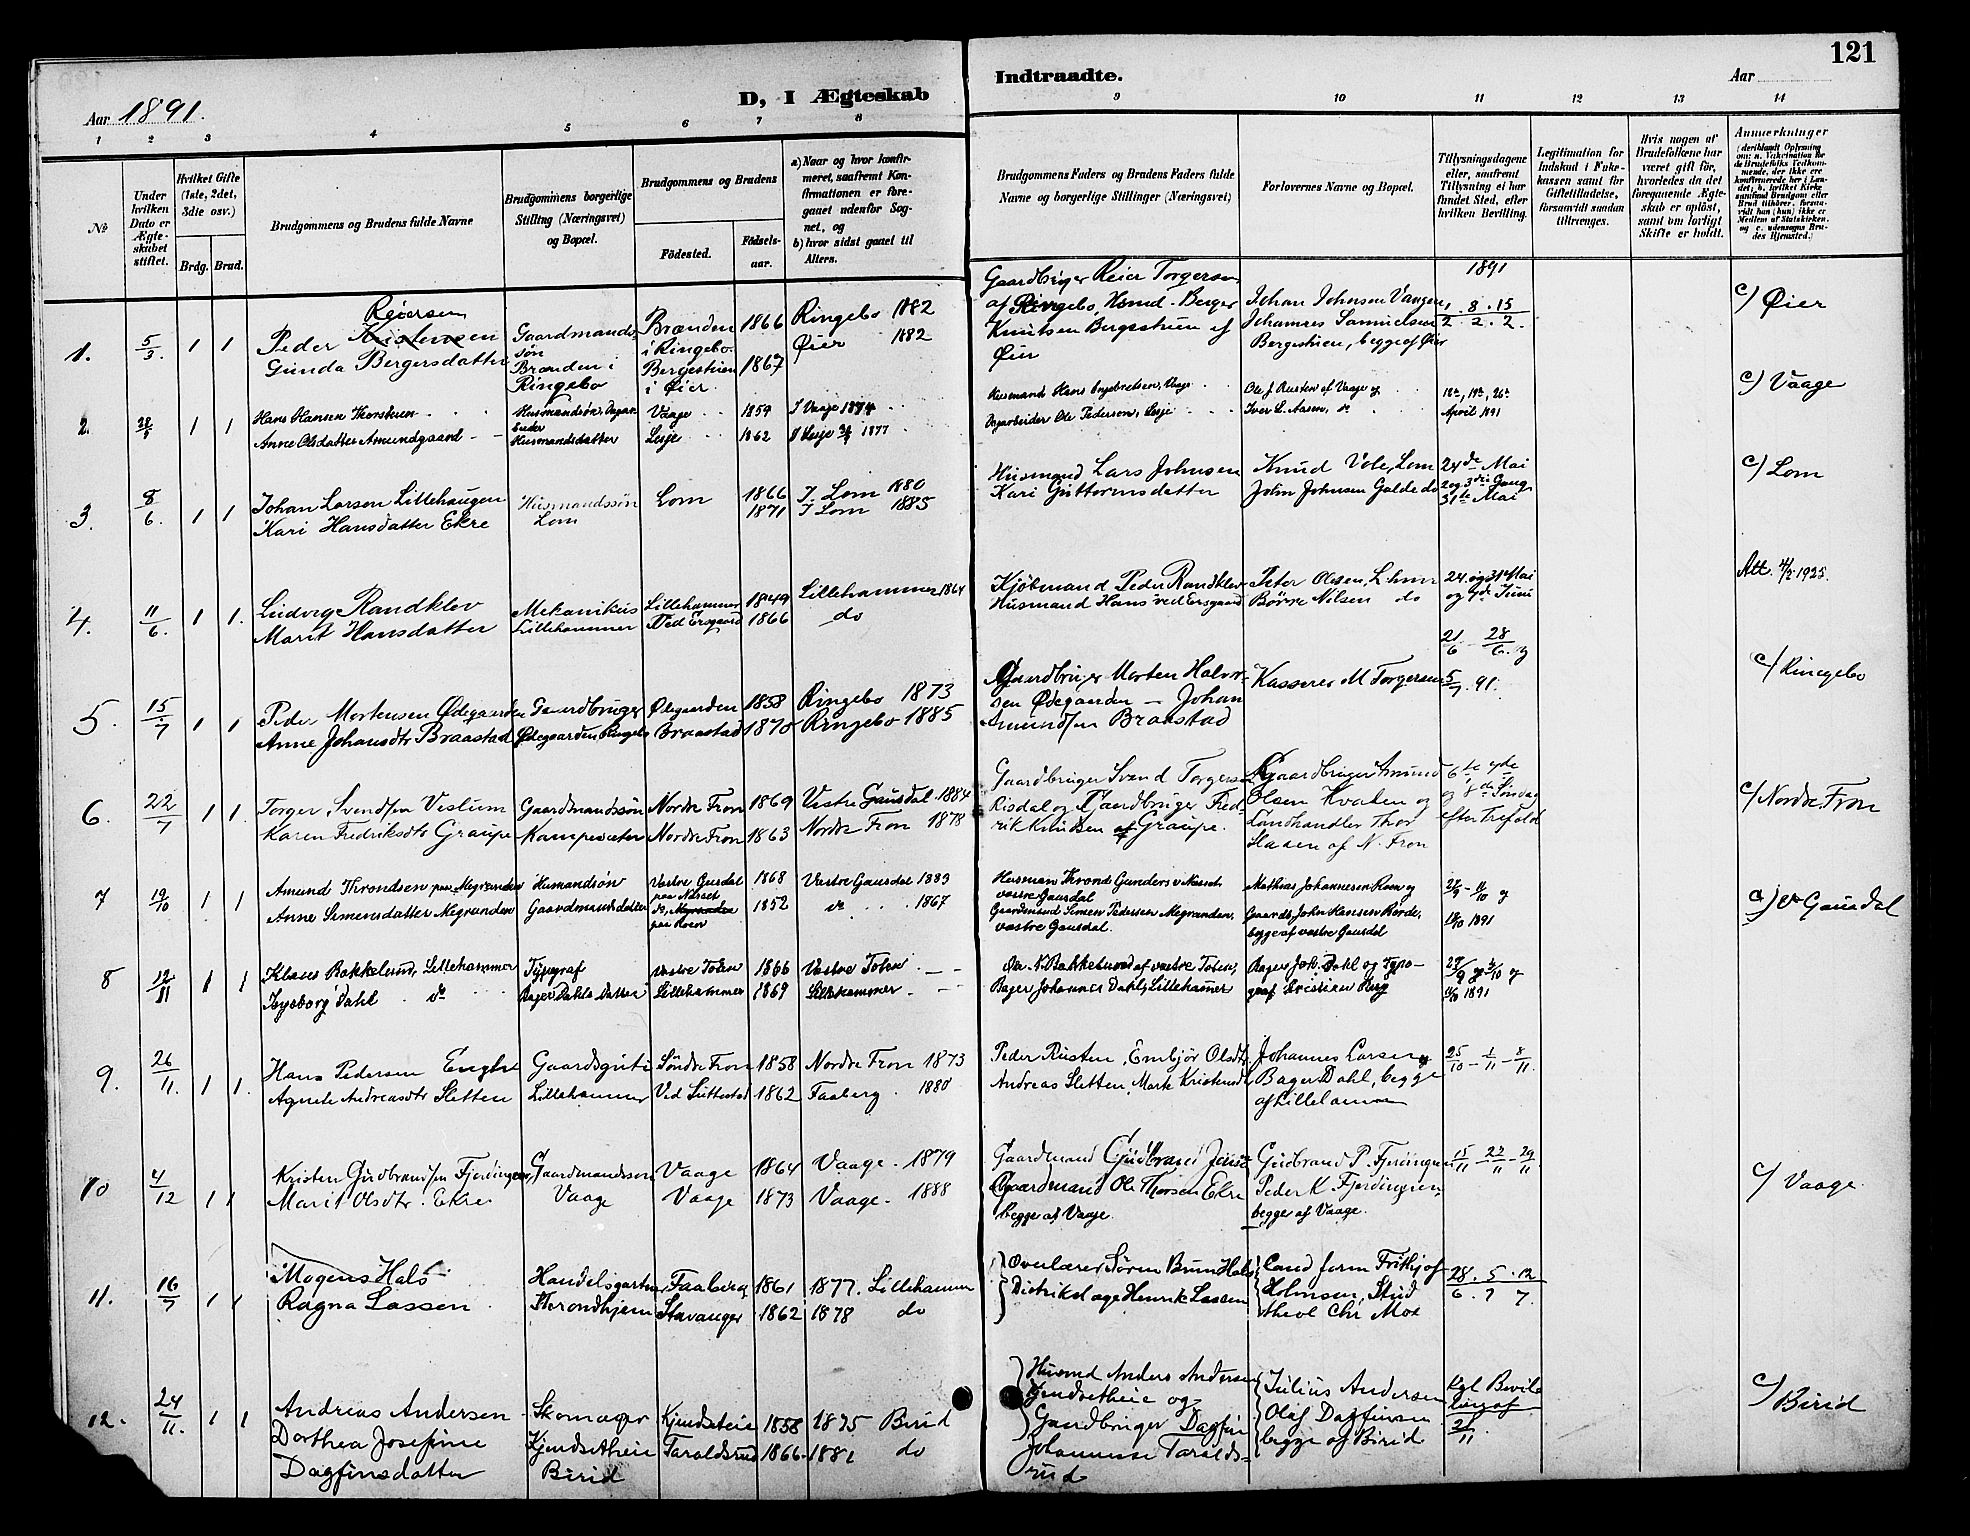 121
Aar 1891.
D, I Ægteskab
Indtraadte.
Aar
1 2 3 4 5 6 7 8 9 10 11 12 13 14
No
Under hvilken Dato er Ægteskabet stiftet.
Hvilket Gifte (1ste, 2det, 3die osv.)
Brdg. Brud.
Brudgommens og Brudens fulde Navne
Brudgommens borgerlige Stilling (Næringsvei) og Bopæl.
Brudgommens og Brudens
Fødested.
Fødselsaar.
a) Naar og hvor konfirmeret, saafremt Konfirmationen er foregaaet udenfor Sognet, og
b) hvor sidst gaaet til Alters.
Brudgommens Faders og Brudens Faders fulde Navne og borgerlige Stillinger (Næringsvei)
Forlovernes Navne og Bopæl.
Tillysningsdagene eller, saafremt Tillysning ei har fundet Sted, efter hvilken Bevilling.
Legitimation for Indskud i Enkekassen samt for Giftetilladelse, forsaavidt saadan tiltrænges.
Hvis nogen af Brudefolkene har været gift før, hvorledes da det foregaaende Ægteskab er opløst, samt om lovligt Skifte er holdt.
Anmærkninger
(deriblandt Oplysning om: a. Vakcination for de Brudefolks Vedkommende, der ikke ere konfirmerede her i Landet; b. hvilket Kirkesamfund Brudgom eller Brud tilhører, forsaavidt han (hun) ikke er Medlem af Statskirken, og c. udensogns Brudes Hjemsted.)
1. 5/3. 1 1
Reiersen
Peder Kristensen
Gunda Bergersdatter
Gaardmands-
søn
Brænden i
Ringebo
Brænden
i Ringebo.
Bergestuen
i Øier.
1866
1867
Ringebo 1882
Øier 1882
Gaardbruger Reier Torgersen
af Ringebo, Husmd. Berger
Knutsen Bergestuen af
Øier
Johan Johnsen Vangen,
Johannes Samuelsen
Bergestuen, begge af Øier
1891
1. 8. 15
2. 2. 2.
c) Øier
2. 1 1
Hans Hansen
Anne Olsdatter Amundgaard
Husmandsdatter
Vaage
Lesje
1859
1862
I Vaage 1874
I Lesje 1877
Husmand Hans Ingebretsen, Vaage
Ole Pedersen, Lesje
Ole J. Rusten af Vaage og
Iver L. Aasen, do
12te, 19de, 26de
April 1891
c) Vaage
3. 8/6. 1 1
Johan Larsen Lillehaugen
Kari Hansdatter Ekre
Husmandssøn
Lom
Lom
1866
1871
I. Lom 1880
I Lom 1885
Husmand Lars Johnsen
Kari Guttormsdatter
Knud Vole, Lom
John Johnsen Galde do
24de Mai
2 og 3die Gang
31te Mai
c) Lom
4. 11/6. 1 1.
Ludvig Randklev
Marit Hansdatter
Mekanikus
Lillehammer
Lillehammer
Ved Ersgaard
1849
1866
Lillehammer 1864
do
Kjøbmand Peder Randklev
Husmand Hans ved Ersgaard
Peter Olsen, L.hmr
Børre Nilsen do
24. og 31 Mai
og 7de Juni
Att. 1925.
5. 15/7 1 1
Peder Mortensen Ødegaarden
Anne Johansdtr Braastad
Gaardbruger
Ødegaarden Ringebo
Ødegaarden
Braastad
1858
1870
Ringebo 1873
Ringebo 1885
Gaardbruger Morten Halvor-
sen Ødegaarden – Johan
Amundsen Braastad
Kasserer M Torgersen
21/6 – 28/6. og
5/7. 91.
c) Ringebo
6. 22/7 1 1.
Torger Svendsen Veslum
Karen Fredriksdtr Graupe
Gaardmandssøn
Nordre Fron
Nordre Fron
1869
1863
Vestre Gausdal. 1884
Nordre Fron 1878
Gaardbruger Svend Torgersen
Risdal og Gaardbruger Fred-
rik Knutsen af Graupe.
Gaardbruger Amund
Olsen Kvalen og
Landhandler Thor
af N. Fron
6te 7de
og 8de Søndag
efter Trefold
c) Nordre Fron
7 19/10 1 1
Amund Throndsen paa Megrunden
Anne Simensdatter Megrunden
Husmandsøn
Gaardmandsdatter
Vestre Gusdal
1868
1852
Vestre Gausdal 1883
do 1867
vestre Gausdal
Gaardmand Simen Pedersen Megrunden,
vestre Gausdal.
Mathias Johannesen Roen og
Gaardb. John Hansen Rørde,
begge af vestre Gausdal
1891
c) V. Gausdal
8 12/11 1 1
Klaus Bakkelund, Lillehammer
Ingeborg Dahl do
Typograf
Bager Dahls Datter
Vestre Toten
Lillehammer
1866
1869
Vestre Toten
Lillehammer
Ole N. Bakkelund af vestre Toten,
Bager Johannes Dahl, Lillehammer
Bager Joh. Dahl og Typo-
graf Kristian Berg
1891
9. 26/11. 1 1.
Hans Pedersen
Agnete Andreasdtr Sletten
Lillehammer
Søndre Fron
1858
1862
Nordre Fron 1873
Faaberg. 1880
Peder Rusten, Embjør Olsdtr.
Andreas Sletten, Marte Kristensdtr
Johannes Larsen og
Bager Dahl, begge
af Lillehammer
25/10 – 1/11 – 8/11.
10 4/12 1 1
Kristen Gudbrandsen Fjerdingen
Marit Olsdtr. Ekre
Gaardmandssøn
Vaage
Vaage
Vaage
1864
1873
Vaage. 1879
Vaage. 1888
Gaardmand Gudbrand
Gaardmand Ole Thorsen Ekre
begge af Vaage.
Gudbrand P. Fjerdingen
Peder K. Fjerdingren,
begge af Vaage.
15/11 – 22/11 – 29/11
c/ Vaage.
11. 16/7 1 1
Mogens Hals
Ragna Lassen
Handelsgartner
Therondhjem
Faaberg
Stavanger
1861
1862
1877. Lillehammer
1878 do
Overlærer, Søren Bruun Hals
Distriktslæge Henrik Lassen
Cand farm Frithjof
Holmsen, Stud
theol Chr Moe
28. 5. 12
6. 7 7.
12. 24/11. 1 1
Andreas Andersen
Dorthea Josefine
Dagfinsdatter
Skomager
Kjendsetheie
Birid
Kjendseteie
Taraldsrud
1858
1866
1875 Birid
1881 do
Husmd Anders Andersen
Kjendsetheie og
Gaardbruger Dagfin
Johannesen Taralds-
rud
Julius Andersen
Olaf Dagfinsen
begge af Birid
Kgl Bevil-
ling af
21/11.
c/ Birid